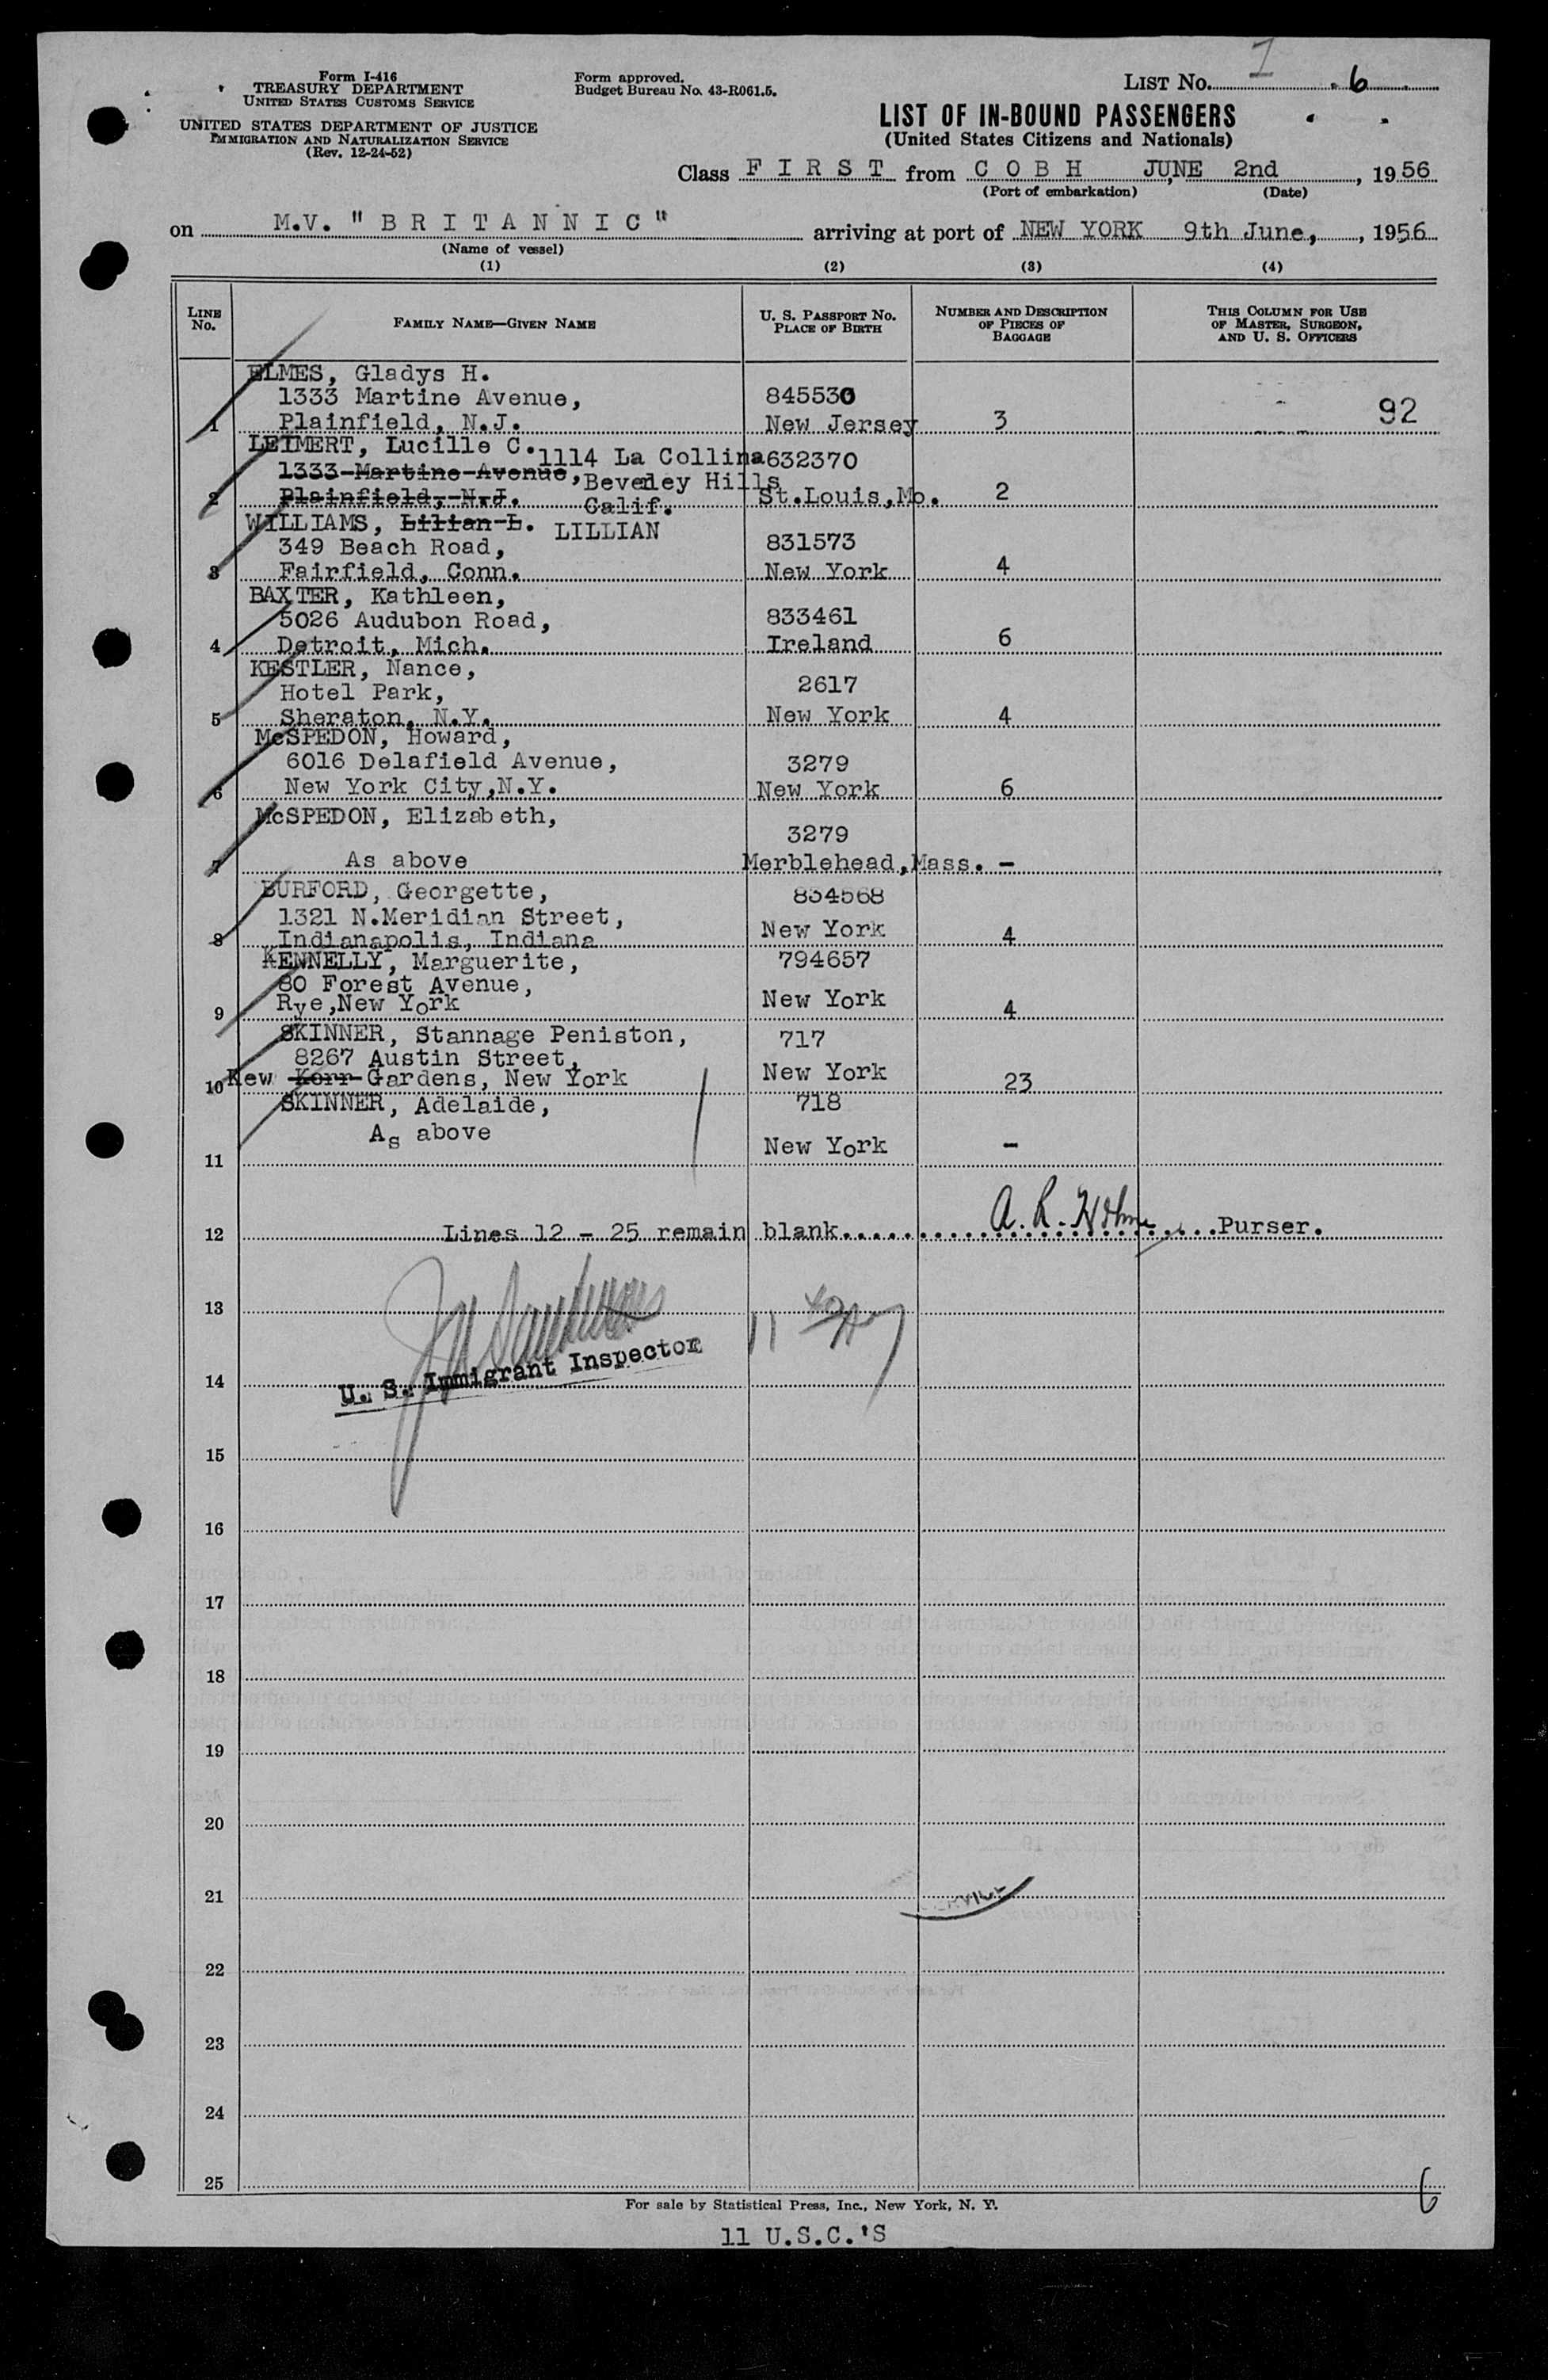 Form I-416
TREASURY DEPARTMENT
UNITED STATES CUSTOMS SERVICE
UNITED STATES DEPARTMENT OF JUSTICE
IMMIGRATION AND NATURALIZATION SERVICE
(Rev. 12-24-52)
Form approved.
Budget Bureau No. 43-R061.5.
LIST No. I 6
LIST OF IN-BOUND PASSENGERS
(United States Citizens and Nationals)
Class F I R S T from C O B H JUNE 2nd, 1956
(Port of embarkation) (Date)
on M.V. "B R I T A N N I C" arriving at port of NEW YORK 9th June, , 1956
(Name of vessel)
(1) (2) (3) (4)
LINE No. FAMILY NAME—GIVEN NAME U. S. PASSPORT NO. PLACE OF BIRTH NUMBER AND DESCRIPTION OF PIECES OF BAGGAGE THIS COLUMN FOR USE OF MASTER, SURGEON, AND U. S. OFFICERS
ELMES, Gladys H.
1333 Martine Avenue, 845530
1 Plainfield, N.J. New Jersey 3 92
LEIMERT, Lucille C. 1114 La Collina 632370
1333 Martine Avenue, Beverley Hills
2 Plainfield, N.J. Calif. St.Louis,Mo. 2
WILLIAMS, Lilian L. LILLIAN
349 Beach Road, 831573
3 Fairfield, Conn. New York 4
BAXTER, Kathleen,
5026 Audubon Road, 833461
4 Detroit, Mich. Ireland 6
KESTLER, Nance,
Hotel Park, 2617
5 Sheraton, N.Y. New York 4
McSPEDON, Howard,
6016 Delafield Avenue, 3279
6 New York City,N.Y. New York 6
McSPEDON, Elizabeth,
3279
7 As above Merblehead,Mass. -
BURFORD, Georgette, 834568
1321 N.Meridian Street,
8 Indianapolis, Indiana New York 4
KENNELLY, Marguerite, 794657
80 Forest Avenue,
9 Rye,New York New York 4
SKINNER, Stannage Peniston, 717
8267 Austin Street,
10 Kew Korr Gardens, New York New York 23
SKINNER, Adelaide, 718
As above
11 New York -
12 Lines 12 - 25 remain blank.......... A. R. Purser.
13
U. S. Immigrant Inspector
11
14
15
16
17
18
19
20
21
22
23
24
25
For sale by Statistical Press, Inc., New York, N. Y.
6
11 U.S.C.'S